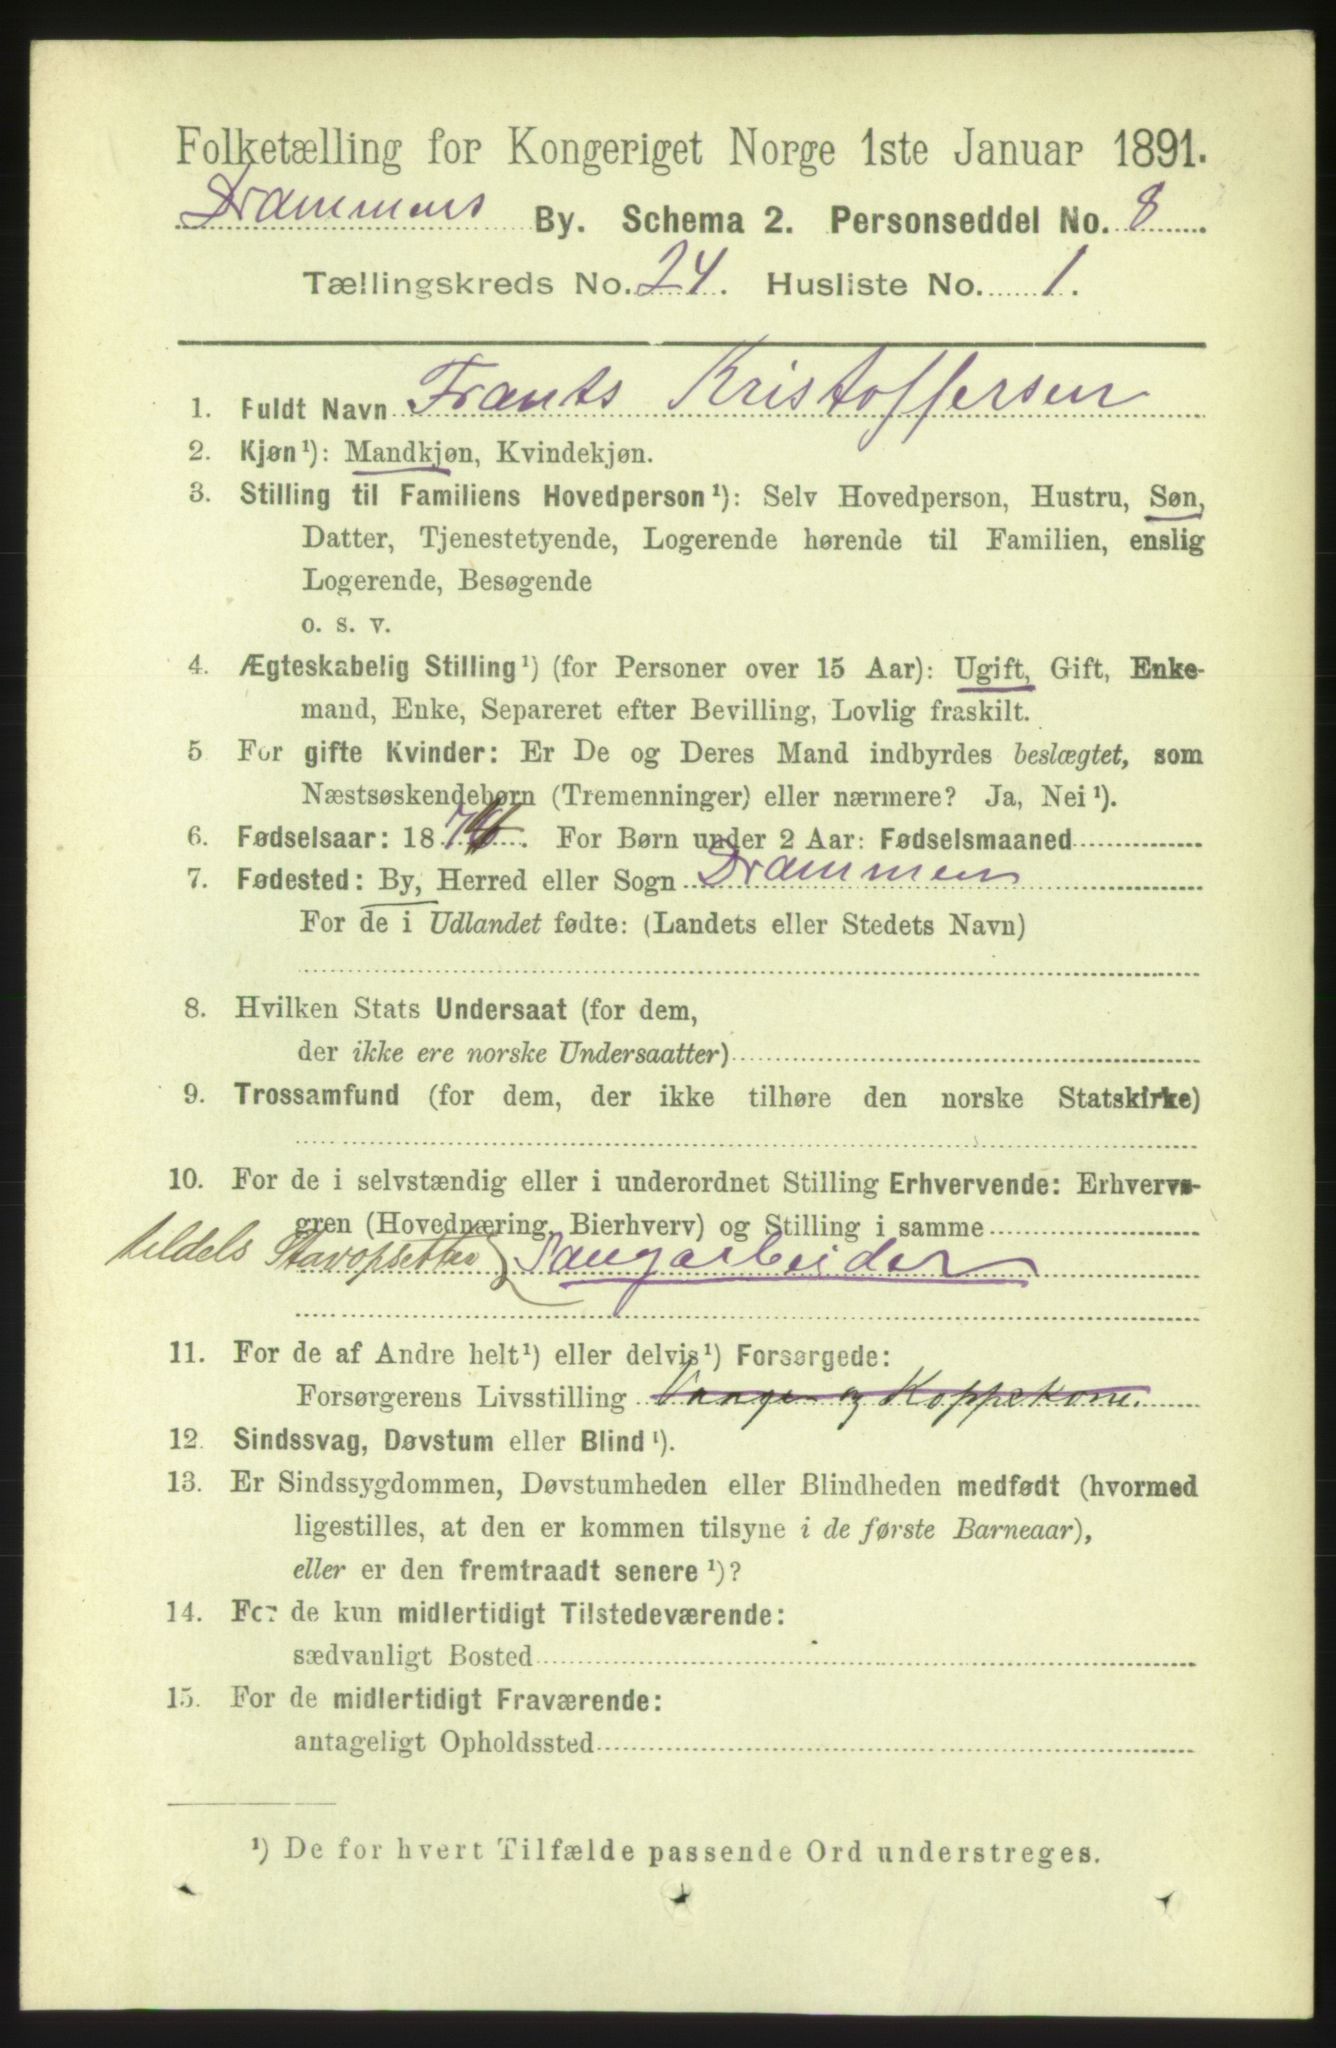 Folketælling for Kongeriget Norge 1ste Januar 1891.
Drammens By. Schema 2. Personseddel No. 8
Tællingskreds No. 24. Husliste No. 1.
1. Fuldt Navn Frants Kristoffersen
2. Kjøn¹): Mandkjøn, Kvindekjøn.
3. Stilling til Familiens Hovedperson¹): Selv Hovedperson, Hustru, Søn,
Datter, Tjenestetyende, Logerende hørende til Familien, enslig
Logerende, Besøgende
o. s. v.
4. Ægteskabelig Stilling¹) (for Personer over 15 Aar): Ugift, Gift, Enke-
mand, Enke, Separeret efter Bevilling, Lovlig fraskilt.
5 For gifte Kvinder: Er De og Deres Mand indbyrdes beslægtet, som
Næstsøskendebørn (Tremenninger) eller nærmere? Ja, Nei¹).
6. Fødselsaar: 187 . For Børn under 2 Aar: Fødselsmaaned
7. Fødested: By, Herred eller Sogn Drammen
For de i Udlandet fødte: (Landets eller Stedets Navn)
8. Hvilken Stats Undersaat (for dem,
der ikke ere norske Undersaatter)
9. Trossamfund (for dem, der ikke tilhøre den norske Statskirke)
10. For de i selvstændig eller i underordnet Stilling Erhvervende: Erhvervs-
gren (Hovednæring, Bierhverv) og Stilling i samme
tildels Stavopsetter Saugarbeider
11. For de af Andre helt¹) eller delvis¹) Forsørgede:
Forsørgerens Livsstilling og Koppekone.
12. Sindssvag, Døvstum eller Blind¹).
13. Er Sindssygdommen, Døvstumheden eller Blindheden medfødt (hvormed
ligestilles, at den er kommen tilsyne i de første Barneaar),
eller er den fremtraadt senere¹)?
14. For de kun midlertidigt Tilstedeværende:
sædvanligt Bosted
15. For de midlertidigt Fraværende:
antageligt Opholdssted
¹) De for hvert Tilfælde passende Ord understreges.